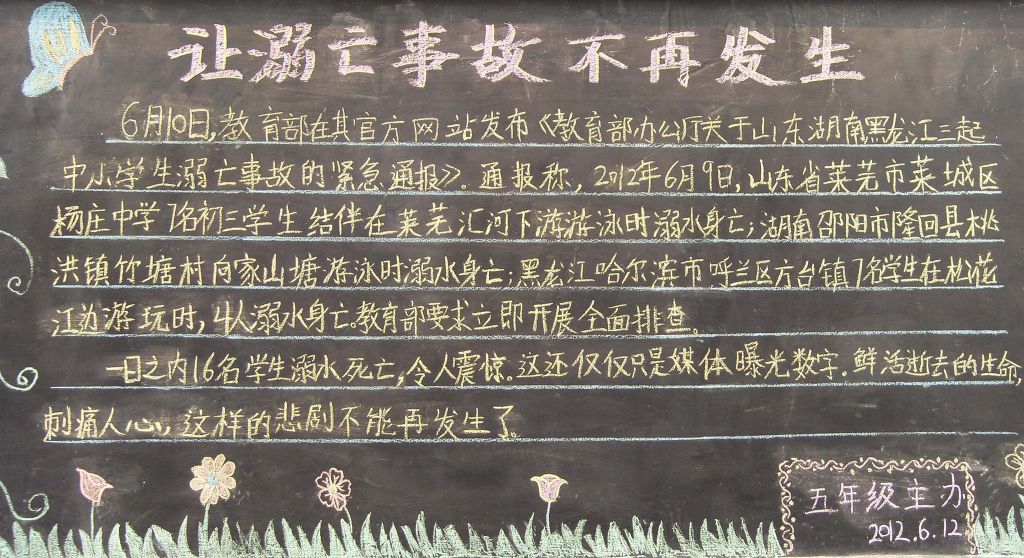 让溺亡事故不再发生
6月10日,教育部在其官方网站发布《教育部办公厅关于山东湖南黑龙江三起
中小学生溺亡事故的紧急通报》。通报称,2012年6月9日,山东省莱芜市莱城区
杨庄中学7名初三学生结伴在莱芜汇河下游游泳时溺水身亡;湖南邵阳市隆回县桃
洪镇竹塘村向家山塘游泳时溺水身亡;黑龙江哈尔滨市呼兰区方台镇7名学生在松花
江边游玩时,4人溺水身亡。教育部要求立即开展全面排查。
一日之内16名学生溺水死亡,令人震惊。这还仅仅只是媒体曝光数字.鲜活逝去的生命,
刺痛人心,这样的悲剧不能再发生了。
五年级主办
2012.6.12